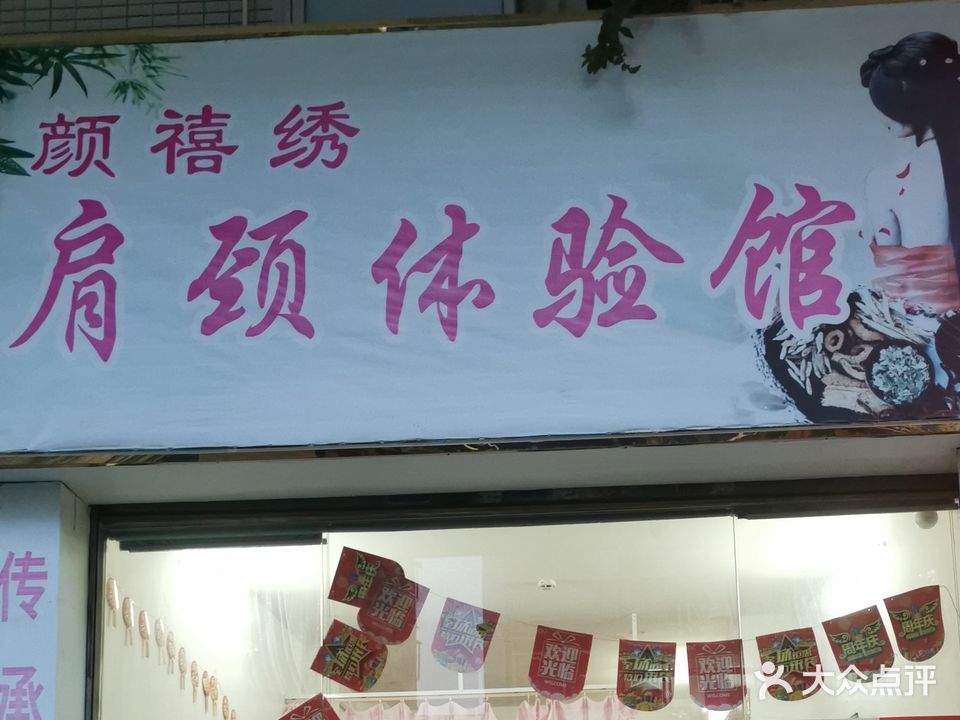 颜禧绣
肩颈体验馆
传
承
周年庆
欢迎
光临
欢迎
光临
WELCOME
欢迎
光临
WELCOME
周年庆
周年庆
大众点评